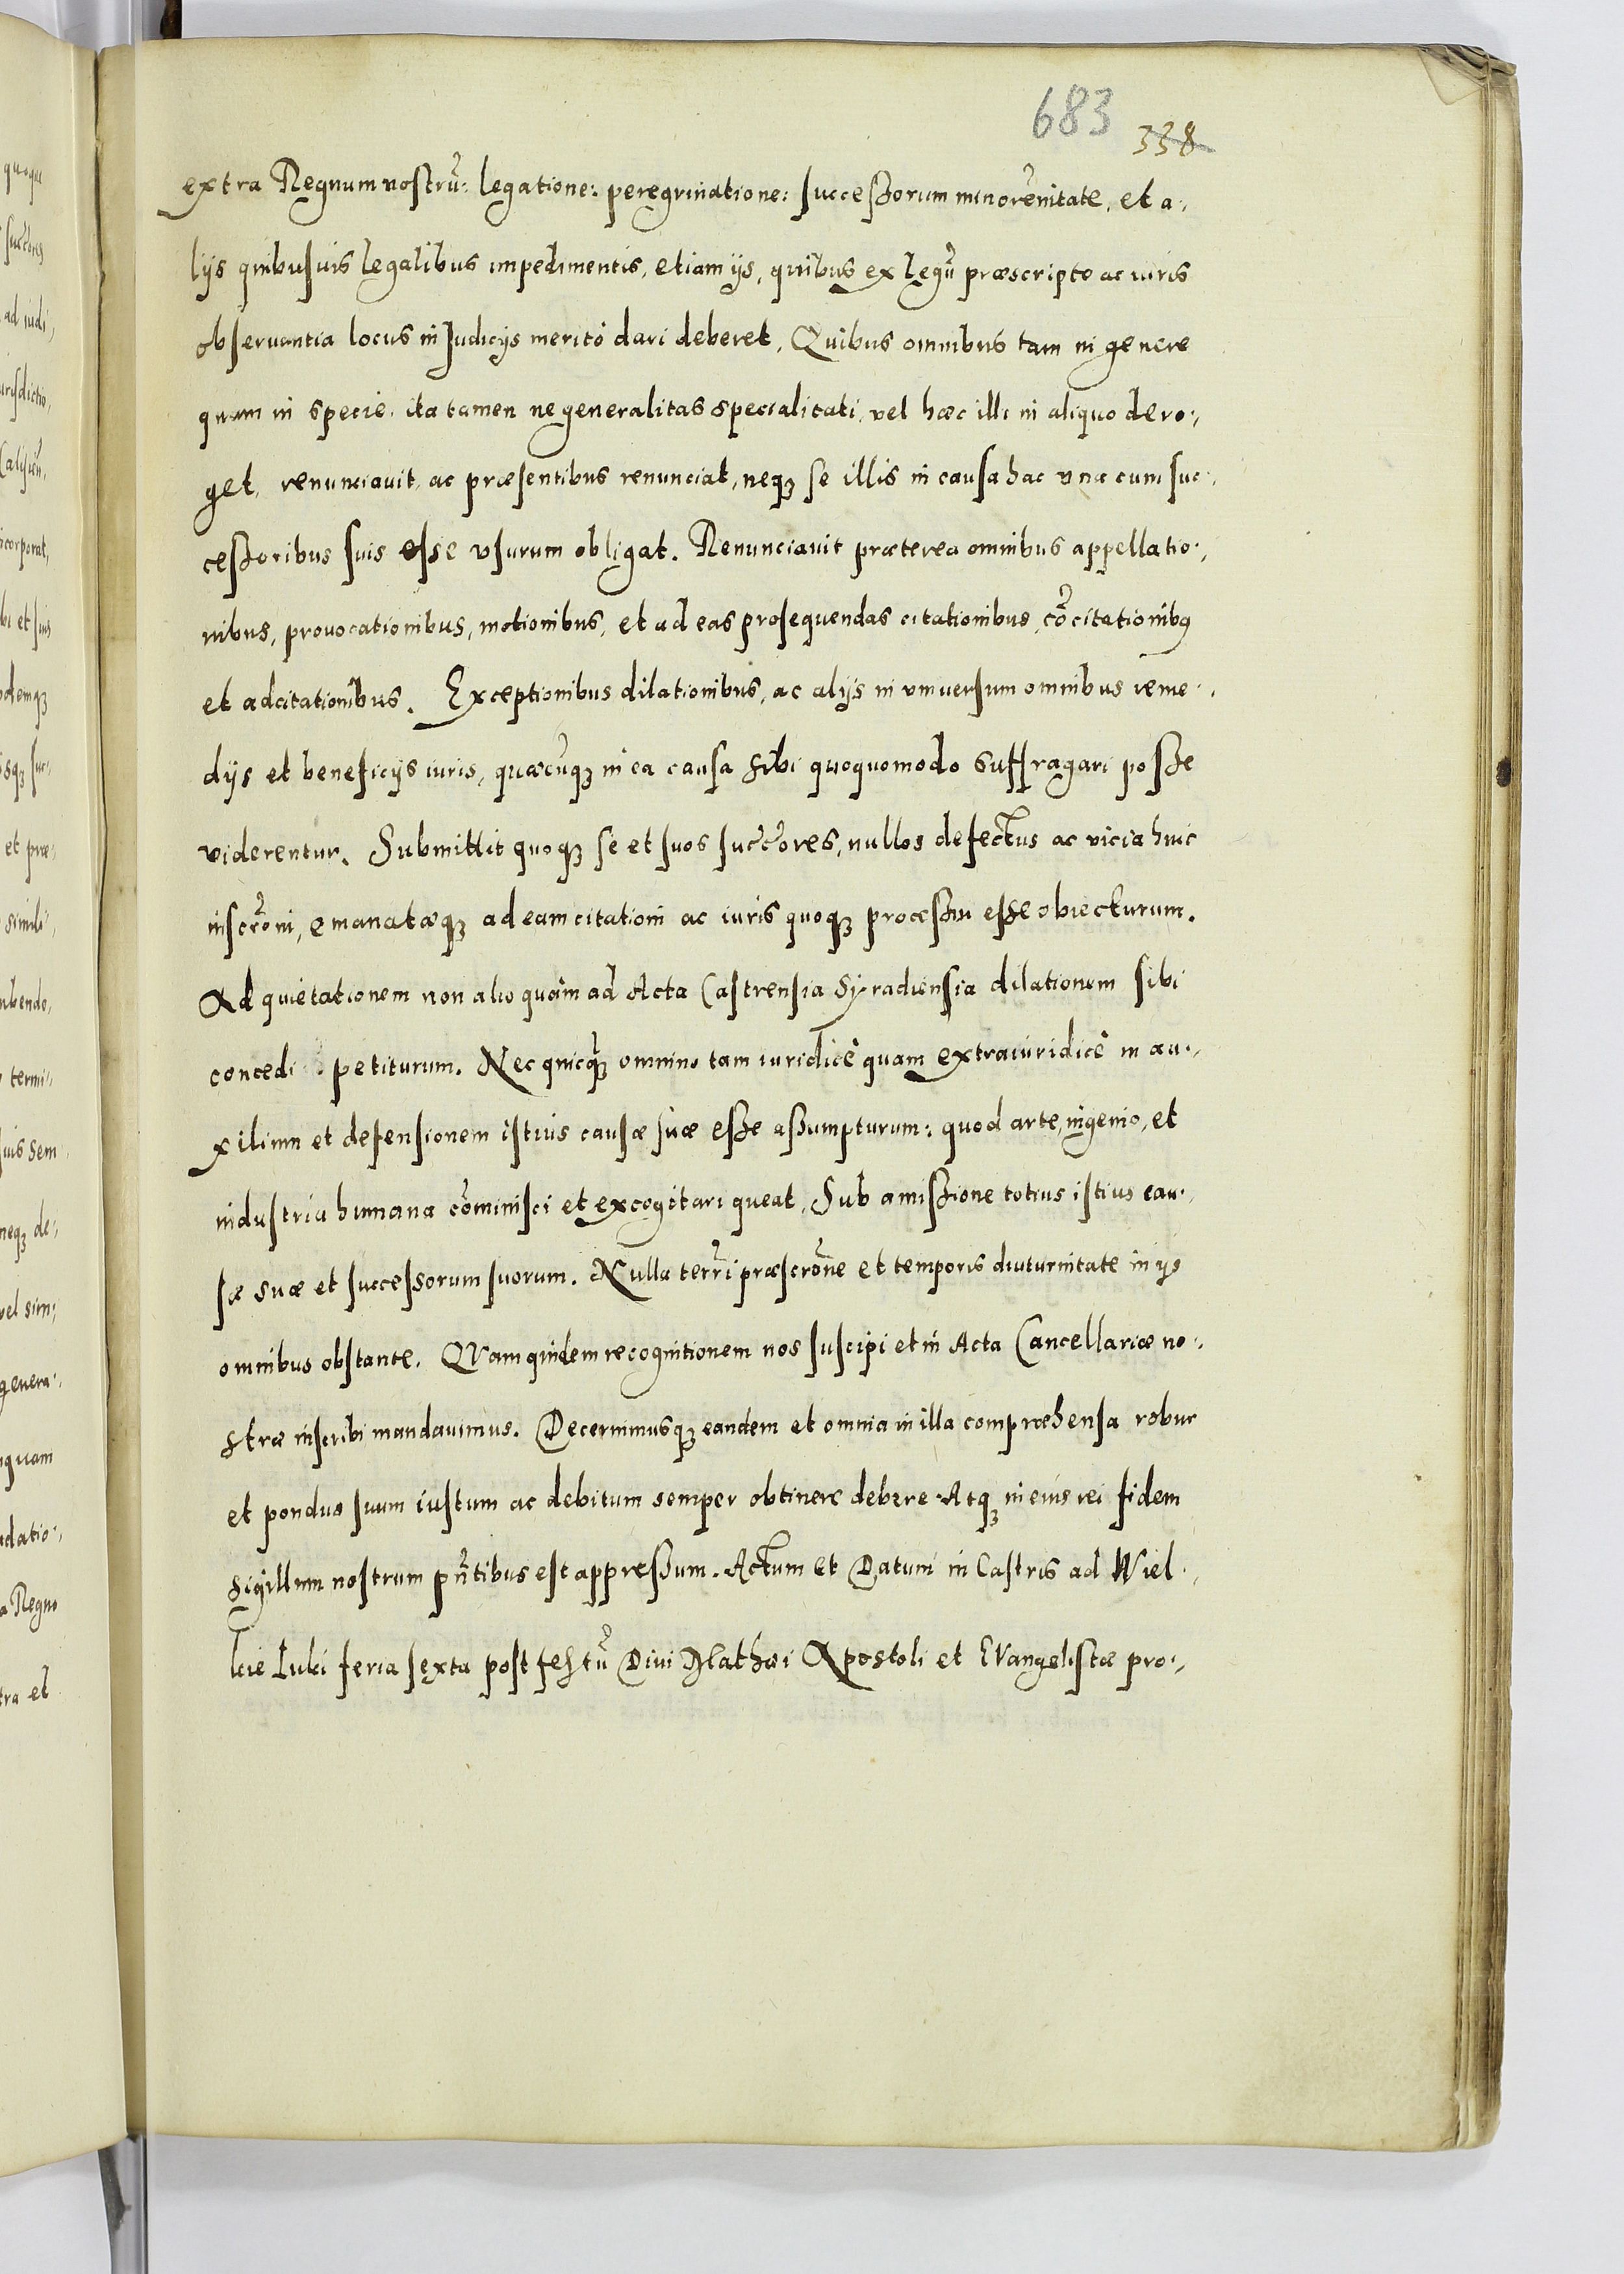 683 338
extra Regnum nostrũ: legatione: peregrinatione: successorum minorẽnitate, et a,
lijs quibusuis legalibus impedimentis, etiam ijs, quibus ex legũ præscripto ac iuris
obseruantia locus in Judicijs meritò dari deberet, Quibus omnibus tam in genere
quam in specie, ita tamen ne generalitas specialitati, vel hæc illi in aliquo dero,
get, renunciauit, ac præsentibus renunciat, neqȝ se illis in causa hac vna cum suc,
cessoribus suis esse vsurum obligat. Renunciauit præterea omnibus appellatio,
nibus, prouocationibus, motionibus, et ad eas prosequendas citationibus, cõcitationibꝰ
et adcitationibus. Exceptionibus dilationibus, ac alijs in vniuersum omnibus reme,
dijs et beneficijs iuris, quæcũqȝ in ea causa sibi quoquomodo suffragari posse
viderentur. Submittit quoqȝ se et suos succ̃ores, nullos defectus ac vicia huic
inscrõni, emanatæqȝ ad eam citationi ac iuris quoqȝ processui esse obiecturum.
Ad quietationem non alio quàm ad Acta Castrensia Syradiensia dilationem sibi
concedi petiturum. Nec quicq̃ȝ omnino tam iuridicè quam extraiuridicè in au,
xilium et defensionem istius causæ suæ esse assumpturum: quod arte, ingenio, et
industria humana cõminisci et excogitari queat, Sub amissione totius istius cau,
sæ suæ et successorum suorum. Nulla terrĩ præscrõne et temporis diuturnitate in ijs
omnibus obstante. QVam quidem recognitionem nos suscipi et in Acta Cancellariæ no,
stræ inscribi mandauimus. Decernimusqȝ eandem et omnia in illa compræhensa robur
et pondus suum iustum ac debitum semper obtinere debere Atqȝ in eius rei fidem
Sigillum nostrum pñtibus est appressum. Actum et Datum in Castris ad Wiel,
kie Luki feria sexta post festũ Diui Mathæi Apostoli et EVangelistæ pro,